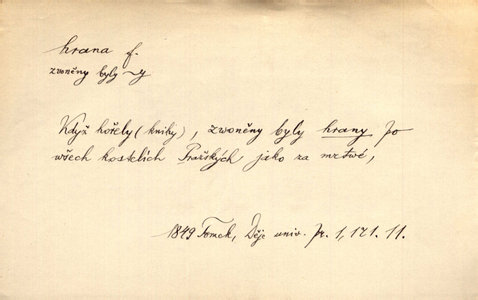 hrana f.
zwoněny byly ~y
Když hořely (knihy), zwoněny byly hrany po
wšech kostelích Pražských jako za mrtwé,
1849 Tomek, Děje univ. pr. 1, 171. 11.